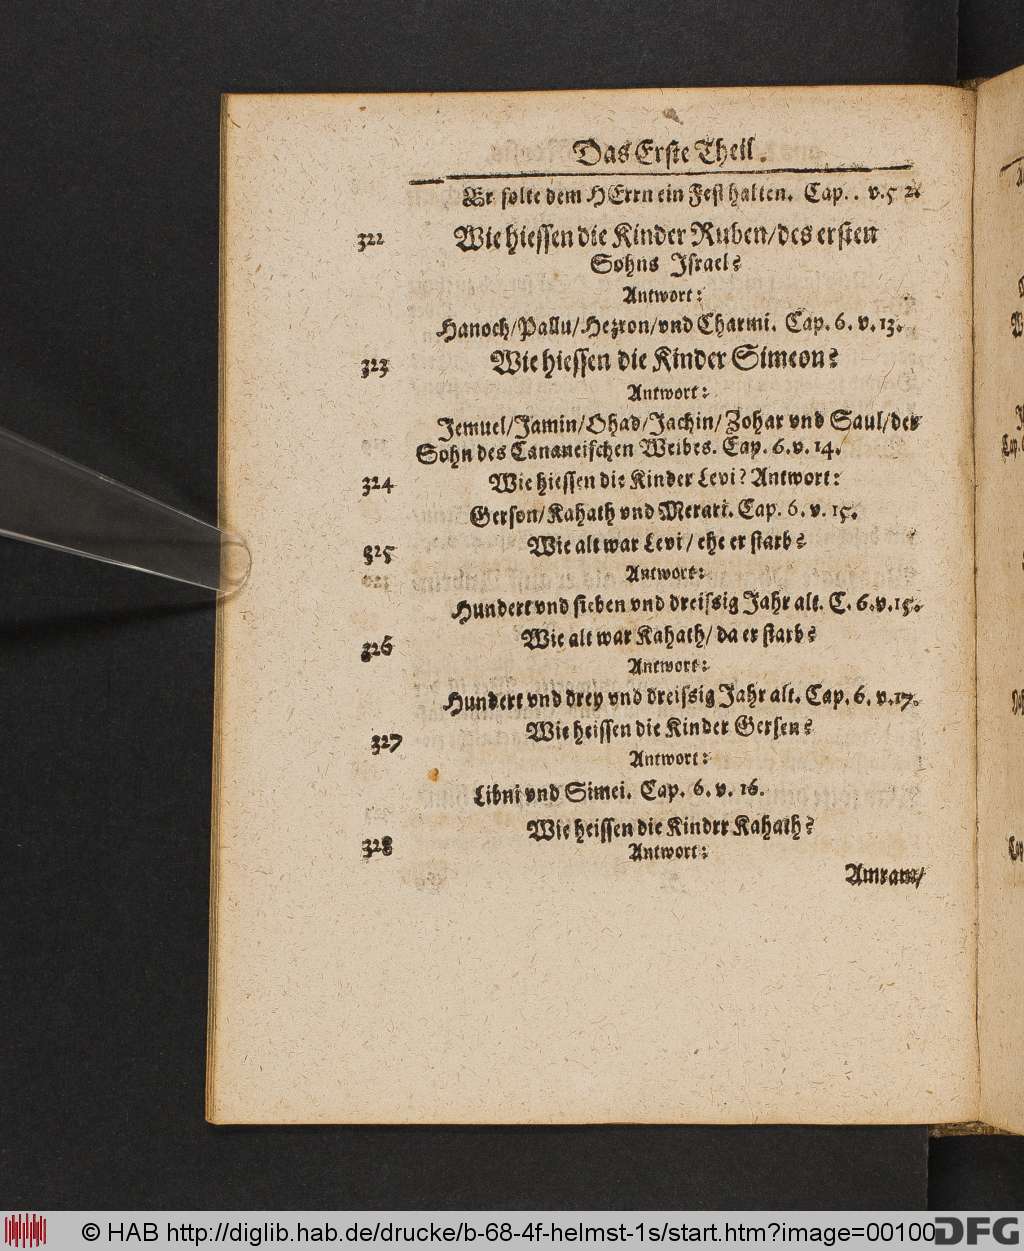 Das Erste Theil.
Er solte dem HErrn ein Fest halten. Cap. . v.5 2.
322 Wie hiessen die Kinder Ruben/des ersten
Sohns Israel?
Antwort:
Hanoch/Pallu/Hezron/vnd Charmi. Cap. 6. v. 13.
323 Wie hiessen die Kinder Simeon?
Antwort:
Jemuel/Jamin/Ohad/Jachin/Zohar vnd Saul/der
Sohn des Cananeischen Weibes. Cap. 6. v. 14.
324 Wie hiessen die Kinder Levi? Antwort:
Gerson/Kahath vnd Merari. Cap. 6. v. 15.
325 Wie alt war Levi/ ehe er starb?
Antwort:
Hundert vnd sieben vnd dreissig Jahr alt. C. 6.v.15.
326 Wie alt war Kahath/ da er starb?
Antwort:
Hundert vnd drey vnd dreissig Jahr alt. Cap. 6. v.17.
327 Wie heissen die Kinder Gersen?
Antwort:
Libni vnd Simei. Cap. 6. v. 16.
328 Wie heissen die Kindrr Kahath?
Antwort:
Amram/
© HAB http://diglib.hab.de/drucke/b-68-4f-helmst-1s/start.htm?image=00100
DFG